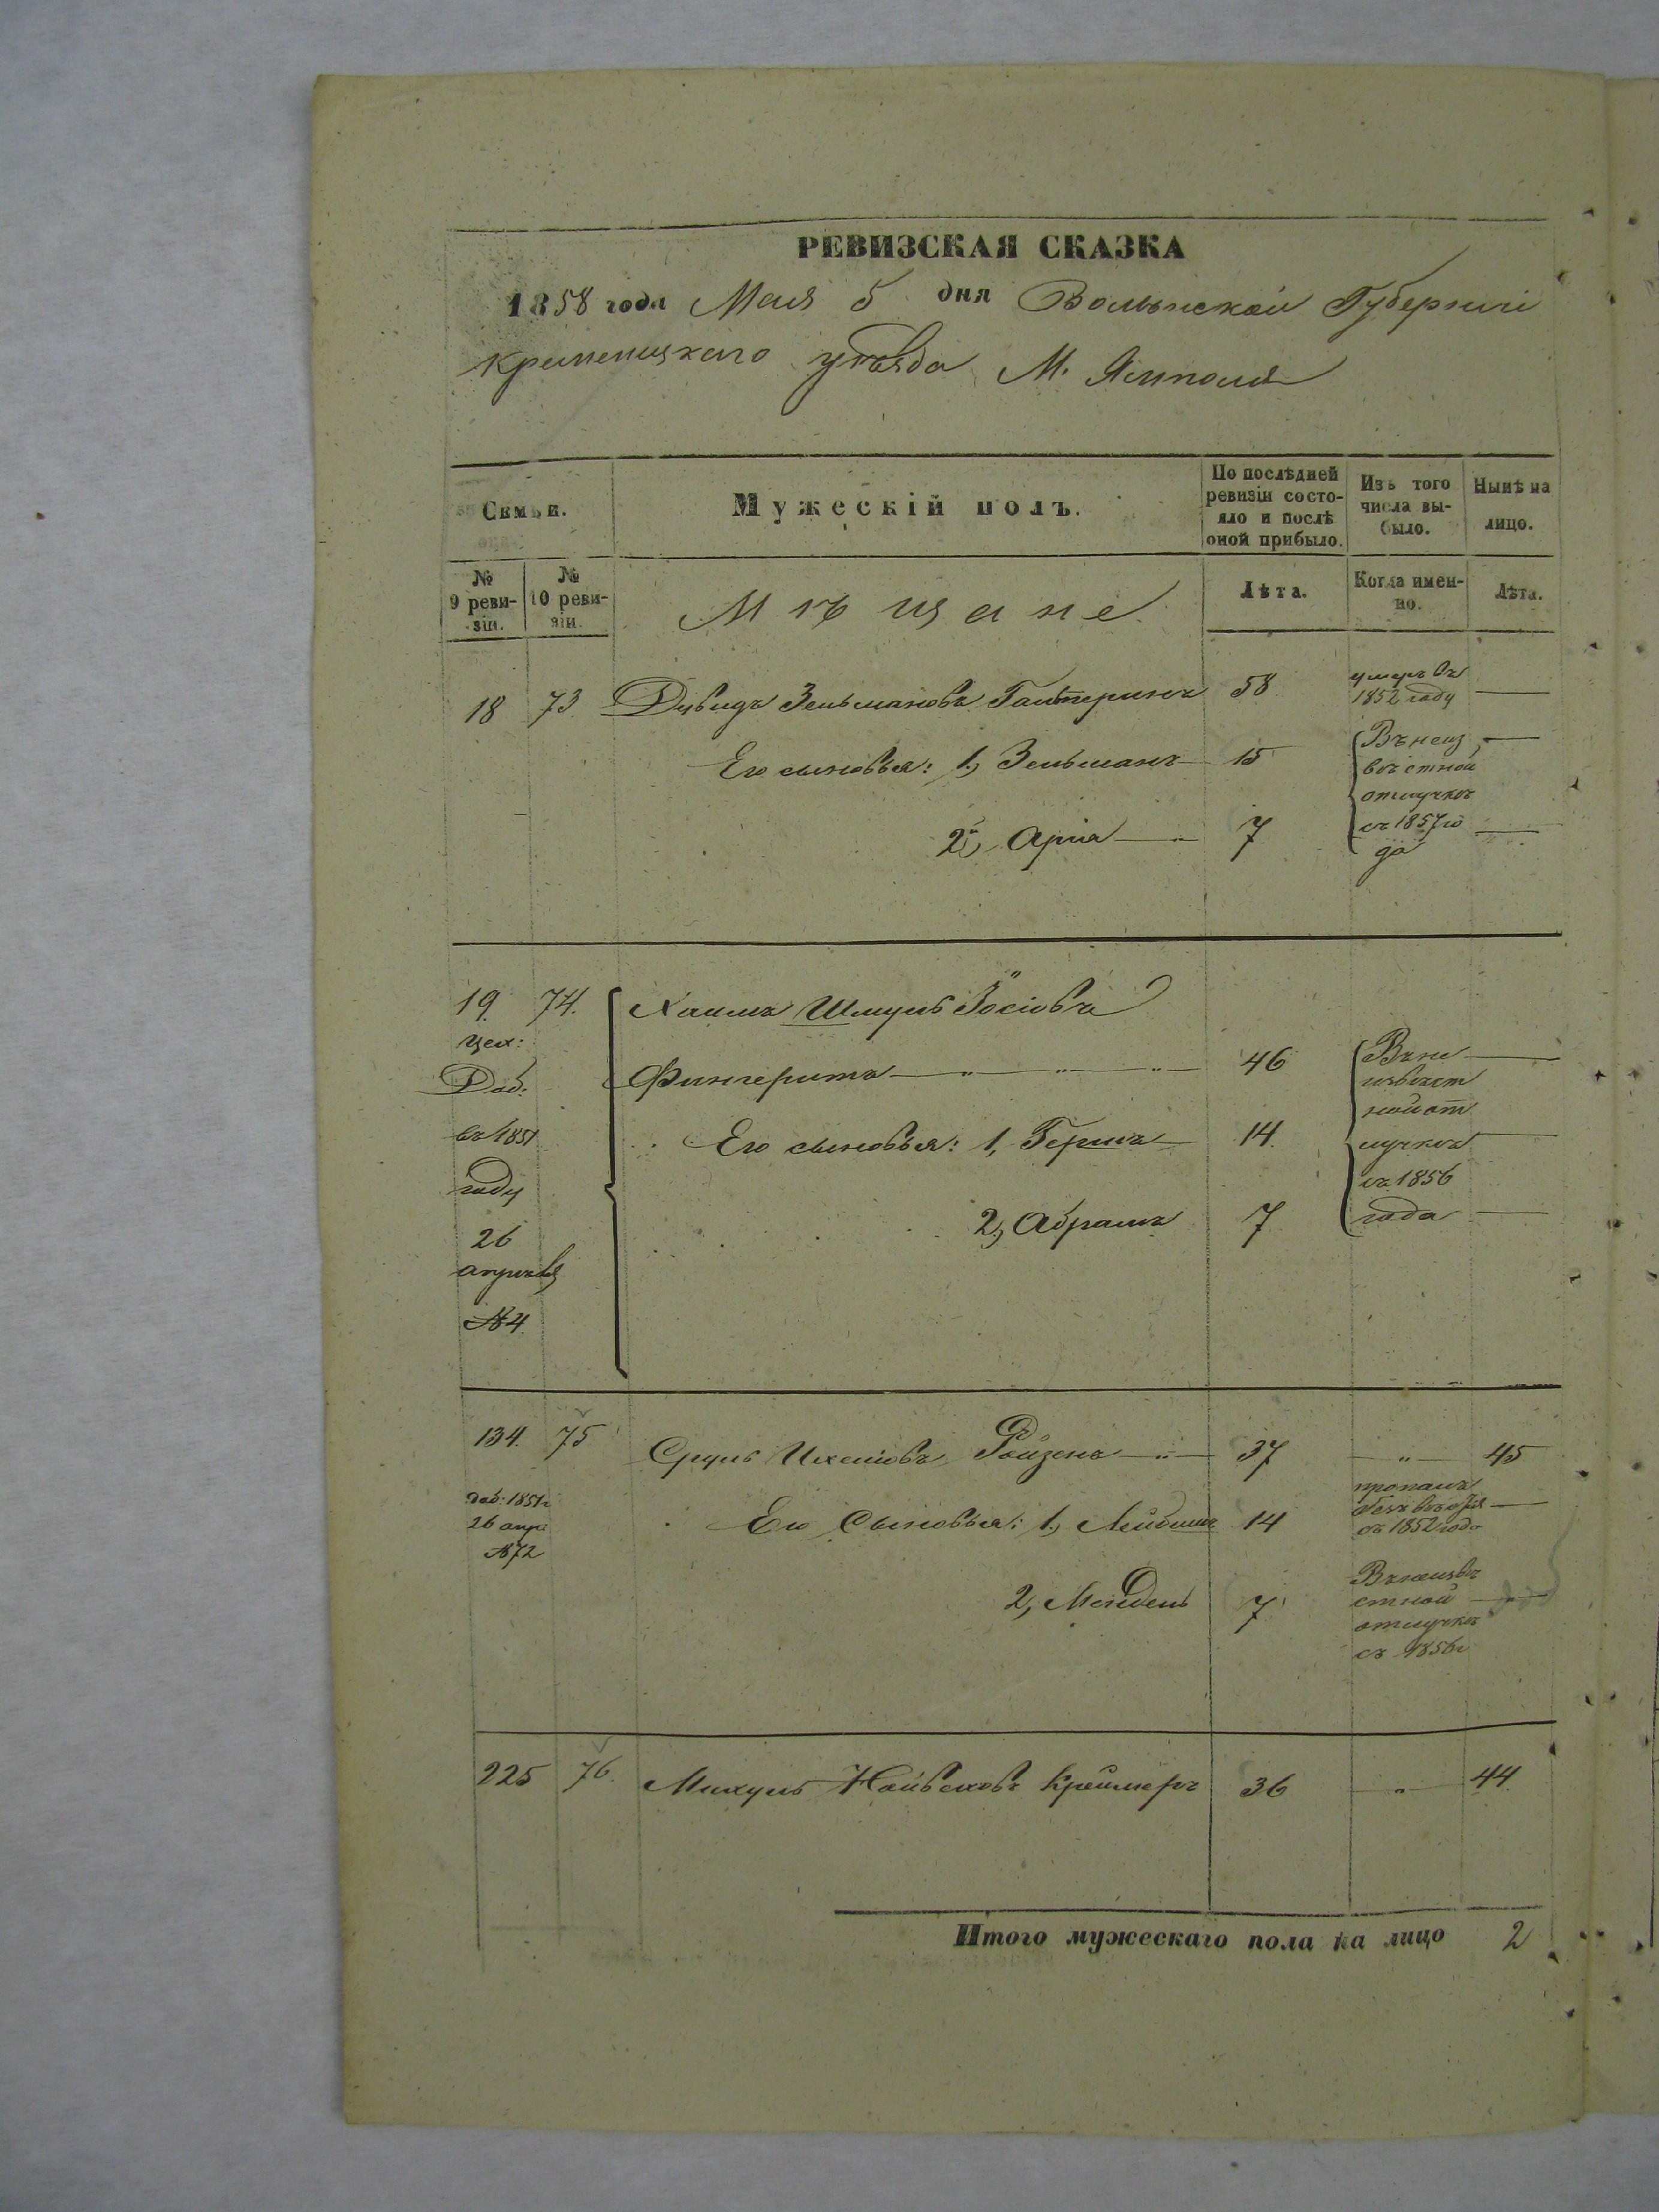 РЕВИЗСКАЯ СКАЗКА
1858 года Мая 5 дня Волынской Губерніи
Кременецкаго уѣзда М. Ямполя
Семьи.
Мужескій полъ.
По послѣдней ревизіи состояло и послѣ оной прибыло.
Изъ того числа выбыло.
Нынѣ на лицо.
№ 9 ревизіи.
№ 10 ревизіи.
Мѣщане
Лѣта.
Когда именно.
Лѣта.
18 73 Дувидъ Зельмановъ Гальперинъ 58 умеръ въ 1852 году —
Его сыновья: 1, Зельманъ 15 —
2й, Арія — 7 —
Въ неиз
вѣстной
отлучкѣ
съ 1857 го
да
19 74. Хаимъ Шмуль Іосіовъ
цех:
Доб:
въ 1851
году
26
апрѣля
№4
Фингеритъ — 46 —
Его сыновья: 1, Гершъ 14. —
2, Абрамъ 7 —
Въ не
извѣст
ной от
лучкѣ
съ 1856
года
134. 75 Сруль Ихелiовъ Ройзенъ — 37 — 45
доб: 1851г
26 апр:
№72
Его Сыновья: 1, Лейбишъ 14 —
пропалъ
безъ вѣстя
въ 1852 годо
2, Мендель 7 —
Въ неизвѣ
стной
отлучкѣ
съ 1856г
225 76. Михуль Найвеховъ Креймеръ 36 — 44
Итого мужескаго пола на лицо 2